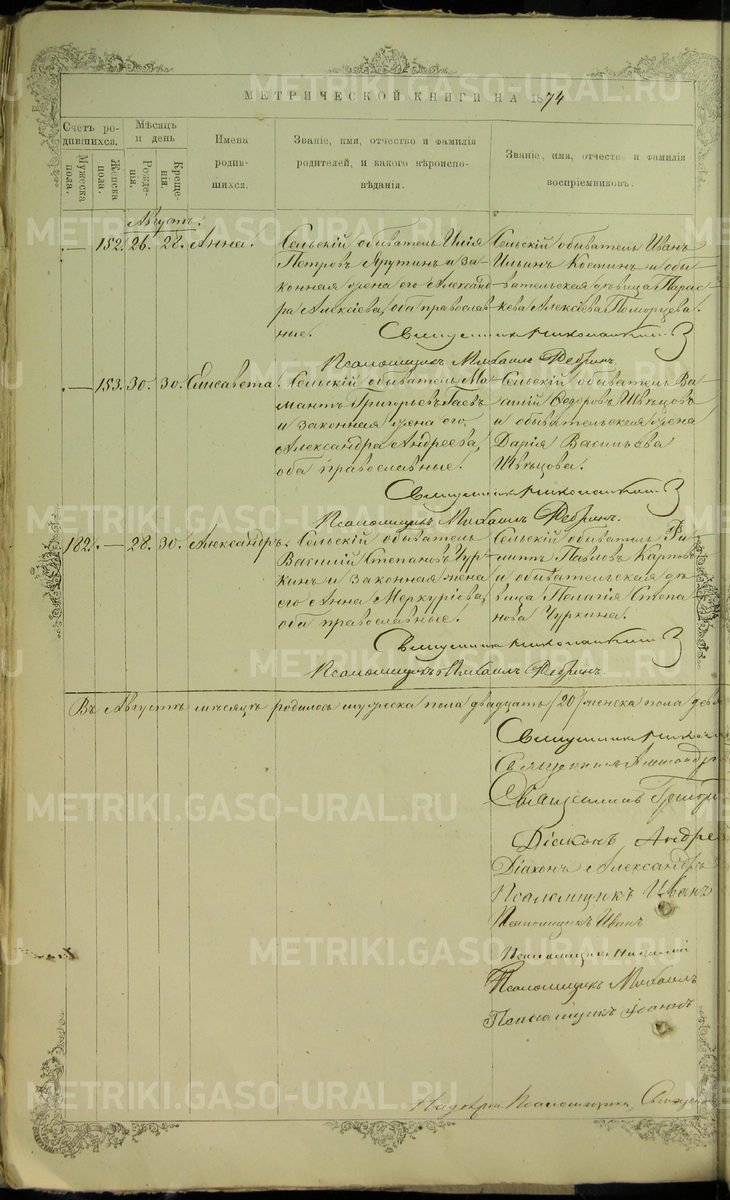 МЕТРИЧЕСКОЙ КНИГИ НА 1874
Счетъ родившихся.
Мужеска пола.
Женска пола.
Мѣсяцъ и день
Рожденія.
Крещенія.
Имена родившихся.
Званіе, имя, отчество и фамилія родителей, и какого вѣроисповѣданія.
Званіе, имя, отчество и фамилія воспріемниковъ.
Августъ.
— 152. 26. 28. Анна.
Сельскій обыватель Илія
Петровъ и за-
конная жена его Александ-
ра Алексіева, оба православ-
ные.
Сельскій обыватель Иванъ
Ильинъ и обы-
вательская дѣвица Парас-
кева Алексіева Поморцева.
Священник
Псаломщикъ Михаилъ
— 153. 30. 30. Елисавета.
Сельскій обыватель Ма-
мантъ Григорьевъ Гаевъ
и законная жена его
Александра Андреева,
оба православные.
Сельскій обыватель Ва-
силій Ѳедоровъ Швецовъ
и обывательская жена
Дарія Васильева
Швецова.
Священник
Псаломщикъ Михаилъ
182. — 28. 30. Александръ.
Сельскій обыватель
Василій Степановъ Чур-
кинъ и законная жена
его Анна Меркуріева,
оба православные.
Сельскій обыватель Фи-
липъ Павловъ
и обывательская дѣ-
вица Пелагія Степа-
нова Чуркина.
Священник
Псаломщикъ Михаилъ
Въ Августѣ мѣсяцѣ родилось мужеска пола двадцать /20/ женска пола
Священник
Священник Александр
Священник Григор
Діаконъ Андре
Діаконъ Александръ
Псаломщикъ Иванъ
Псаломщикъ Иванъ
Псаломщикъ
Псаломщикъ Михаилъ
Псаломщикъ Іоаннъ
METRIKI.GASO-URAL.RU